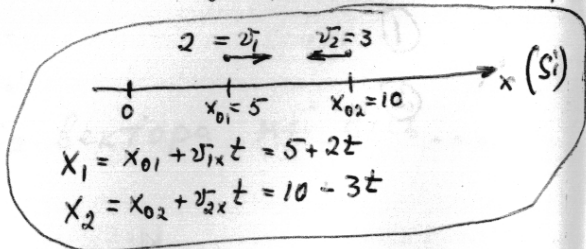 2 = v₁ v₂ = 3
0 x₀₁ = 5 x₀₂ = 10 x (Si)
x₁ = x₀₁ + v₁ₓt = 5 + 2t
x₂ = x₀₂ + v₂ₓt = 10 - 3t